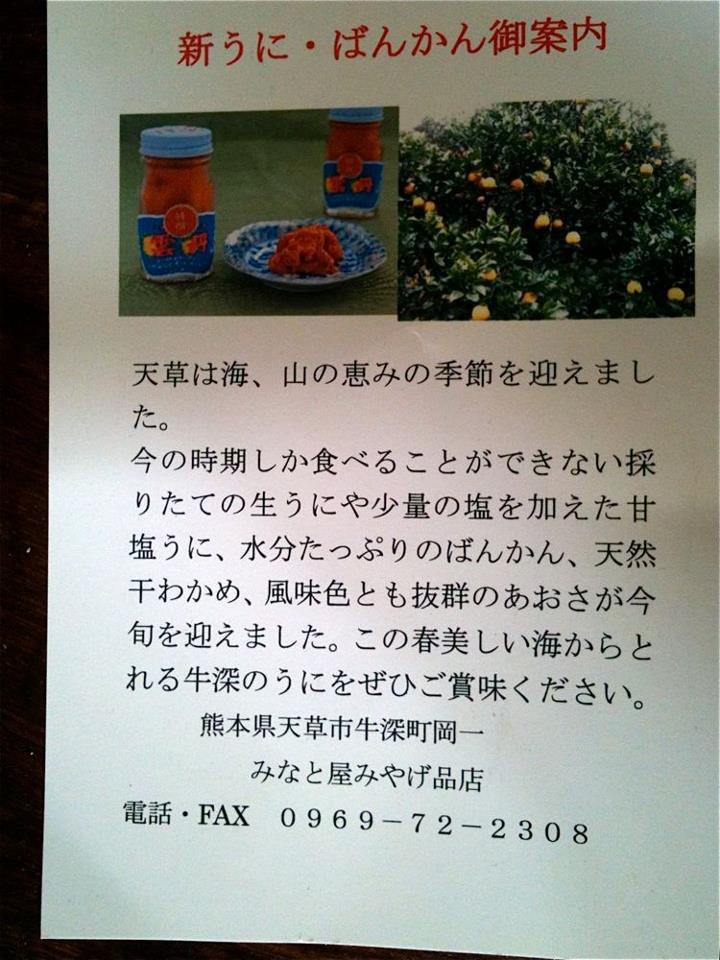 新うに・ばんかん御案内
天草は海、山の恵みの季節を迎えまし
た。
今の時期しか食べることができない採
りたての生うにや少量の塩を加えた甘
塩うに、水分たっぷりのばんかん、天然
干わかめ、風味色とも抜群のあおさが今
旬を迎えました。この春美しい海からと
れる牛深のうにをぜひご賞味ください。
熊本県天草市牛深町岡一
みなと屋みやげ品店
電話・FAX　０９６９－７２－２３０８